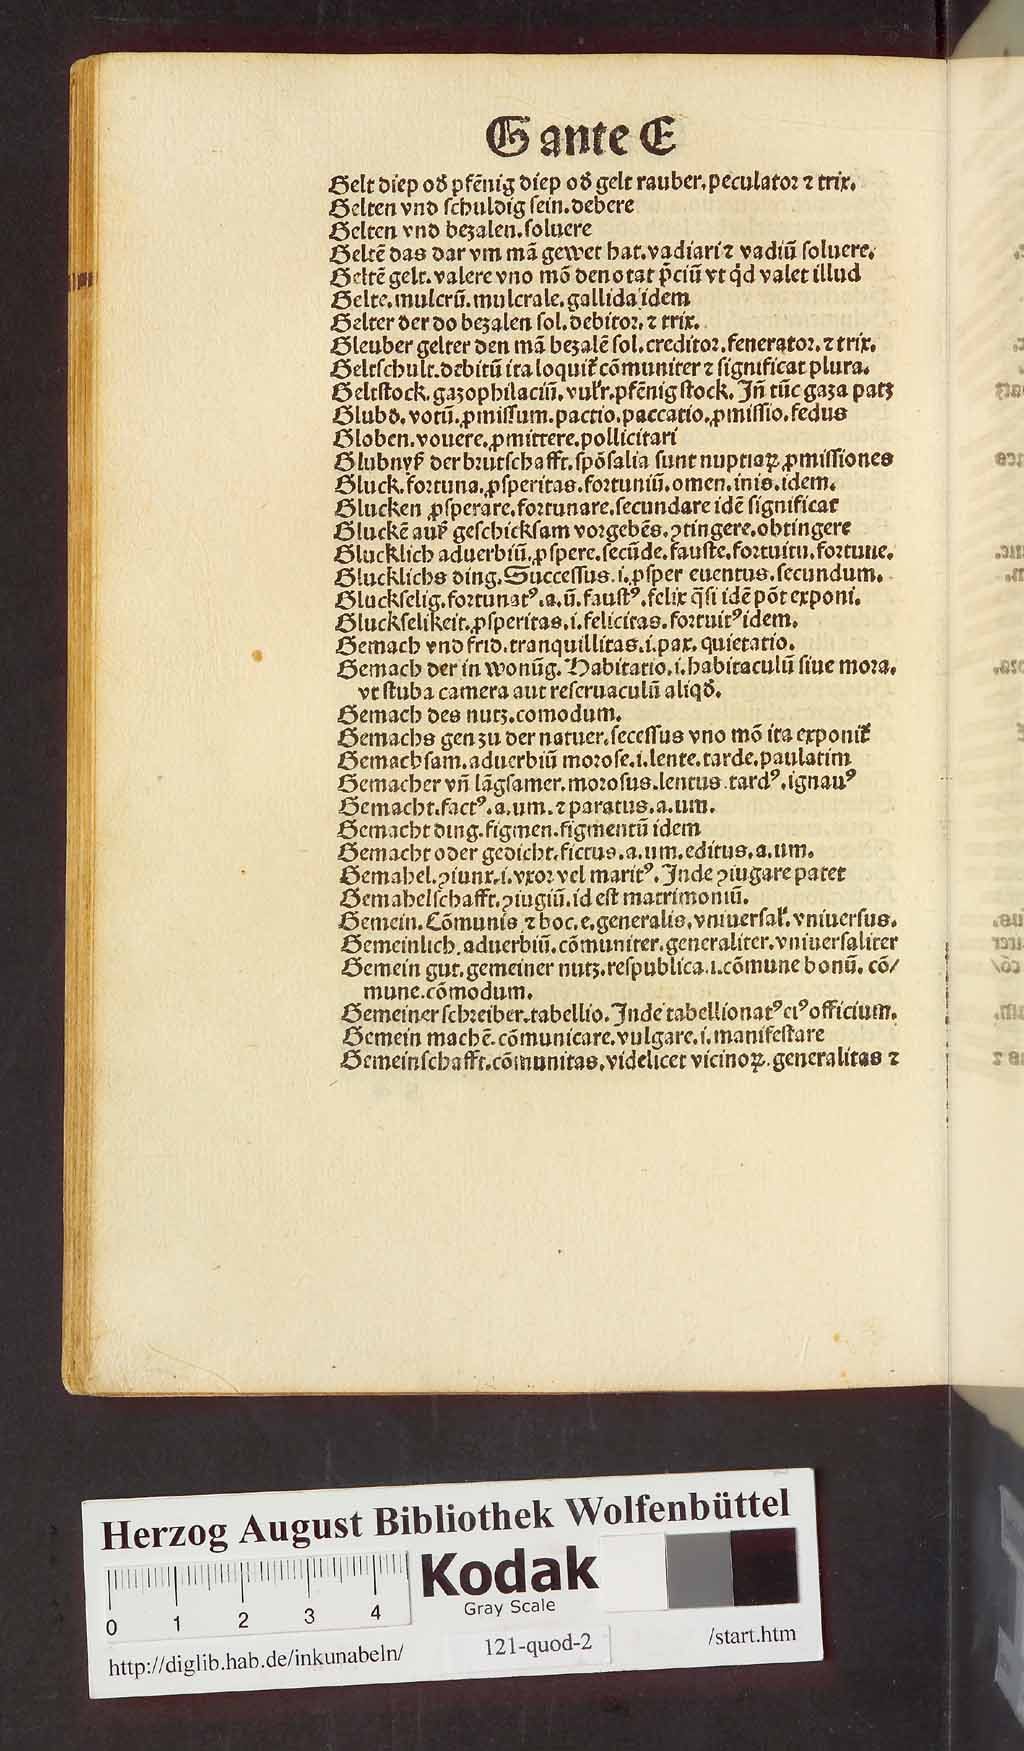 G ante E
Gelt diep od̕ pfēnig diep od̕ gelt rauber. peculator ⁊ trix.
Gelten vnd schuldig sein. debere
Gelten vnd bezalen. soluere
Geltē das dar vm mā gewet hat. vadiari ⁊ vadiū soluere.
Geltē gelt. valere vno mō denotat p̄ciū vt qd̕ valet illud
Gelte. mulcrū. mulcrale. gallida idem
Gelter der do bezalen sol. debitor. ⁊ trix.
Gleuber gelter den mā bezalē sol. creditor. fenerator. ⁊ trix.
Geltschult. debitū ita loquit᷑ cōmuniter ⁊ significat plura.
Geltstock. gazophilaciū. vulr̕. pfēnig stock. Jn̄ tūc gaza patꝫ
Glubd. votū. ꝓmissum. pactio. paccatio. ꝓmissio. fedus
Globen. vouere. ꝓmittere. pollicitari
Glubnyß der brutschafft. spōsalia sunt nuptiaꝝ ꝓmissiones
Gluck. fortuna. ꝓsperitas. fortuniū. omen. inis. idem.
Glucken ꝓsperare. fortunare. secundare idē significat
Gluckē auß geschicksam vorgebēs. ꝯtingere. obtingere
Glucklich aduerbiū. ꝓspere. secūde. fauste. fortuitu. fortune.
Glucklichs ding. Successus. i. ꝓsper euentus. secundum.
Gluckselig. fortunatꝰ. a. ū. faustꝰ. felix q̄si idē pōt exponi.
Gluckselikeit. ꝓsperitas. i. felicitas. fortuitꝰ idem.
Gemach vnd frid. tranquillitas. i. pax. quietatio.
Gemach der in wonūg. Habitatio. i. habitaculū siue mora.
vt stuba camera aut reseruaculū aliqd̕.
Gemach des nutz. comodum.
Gemachs gen zu der natuer. secessus vno mō ita exponit᷑
Gemachsam. aduerbiū morose. i. lente. tarde. paulatim
Gemacher vn̄ lāgsamer. morosus. lentus. tardꝰ. ignauꝰ
Gemacht. factꝰ. a. um. ⁊ paratus. a. um.
Gemacht ding. figmen. figmentū idem
Gemacht oder gedicht. fictus. a. um. editus. a. um.
Gemahel. ꝯiunx. i. vxor vel maritꝰ. Jnde ꝯiugare patet
Gemahelschafft. ꝯiugiū. id est matrimoniū.
Gemein. Cōmunis ⁊ hoc. e. generalis. vniuersal᷑. vniuersus.
Gemeinlich. aduerbiū. cōmuniter. generaliter. vniuersaliter
Gemein gut. gemeiner nutz. respublica. i. cōmune bonū. cō/
mune. cōmodum.
Gemeiner schreiber. tabellio. Jnde tabellionatꝰ eiꝰ officium.
Gemein machē. cōmunicare. vulgare. i. manifestare
Gemeinschafft. cōmunitas. videlicet vicinoꝝ. generalitas ⁊
Herzog August Bibliothek Wolfenbüttel
Kodak
Gray Scale
0 1 2 3 4
http://diglib.hab.de/inkunabeln/ 121-quod-2 /start.htm